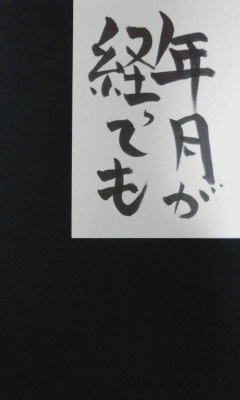 年月が
経っても